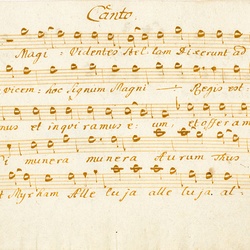 Canto.
Magi Videntes Stellam dixerunt ad
vicem: hoc Signum Magni Regis est
mus et inquiramus e: um, et offeram
ei munera munera Aurum thus
et Myrrham Alle luja alle luja. al: